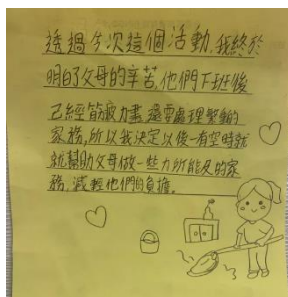 透過今次這個活動,我終於
明白了父母的辛苦,他們下班後
已經筋疲力盡,還要處理繁重的
家務,所以我決定以後一有空時就
就幫助父母做一些力所能及的家
務,減輕他們的負擔。